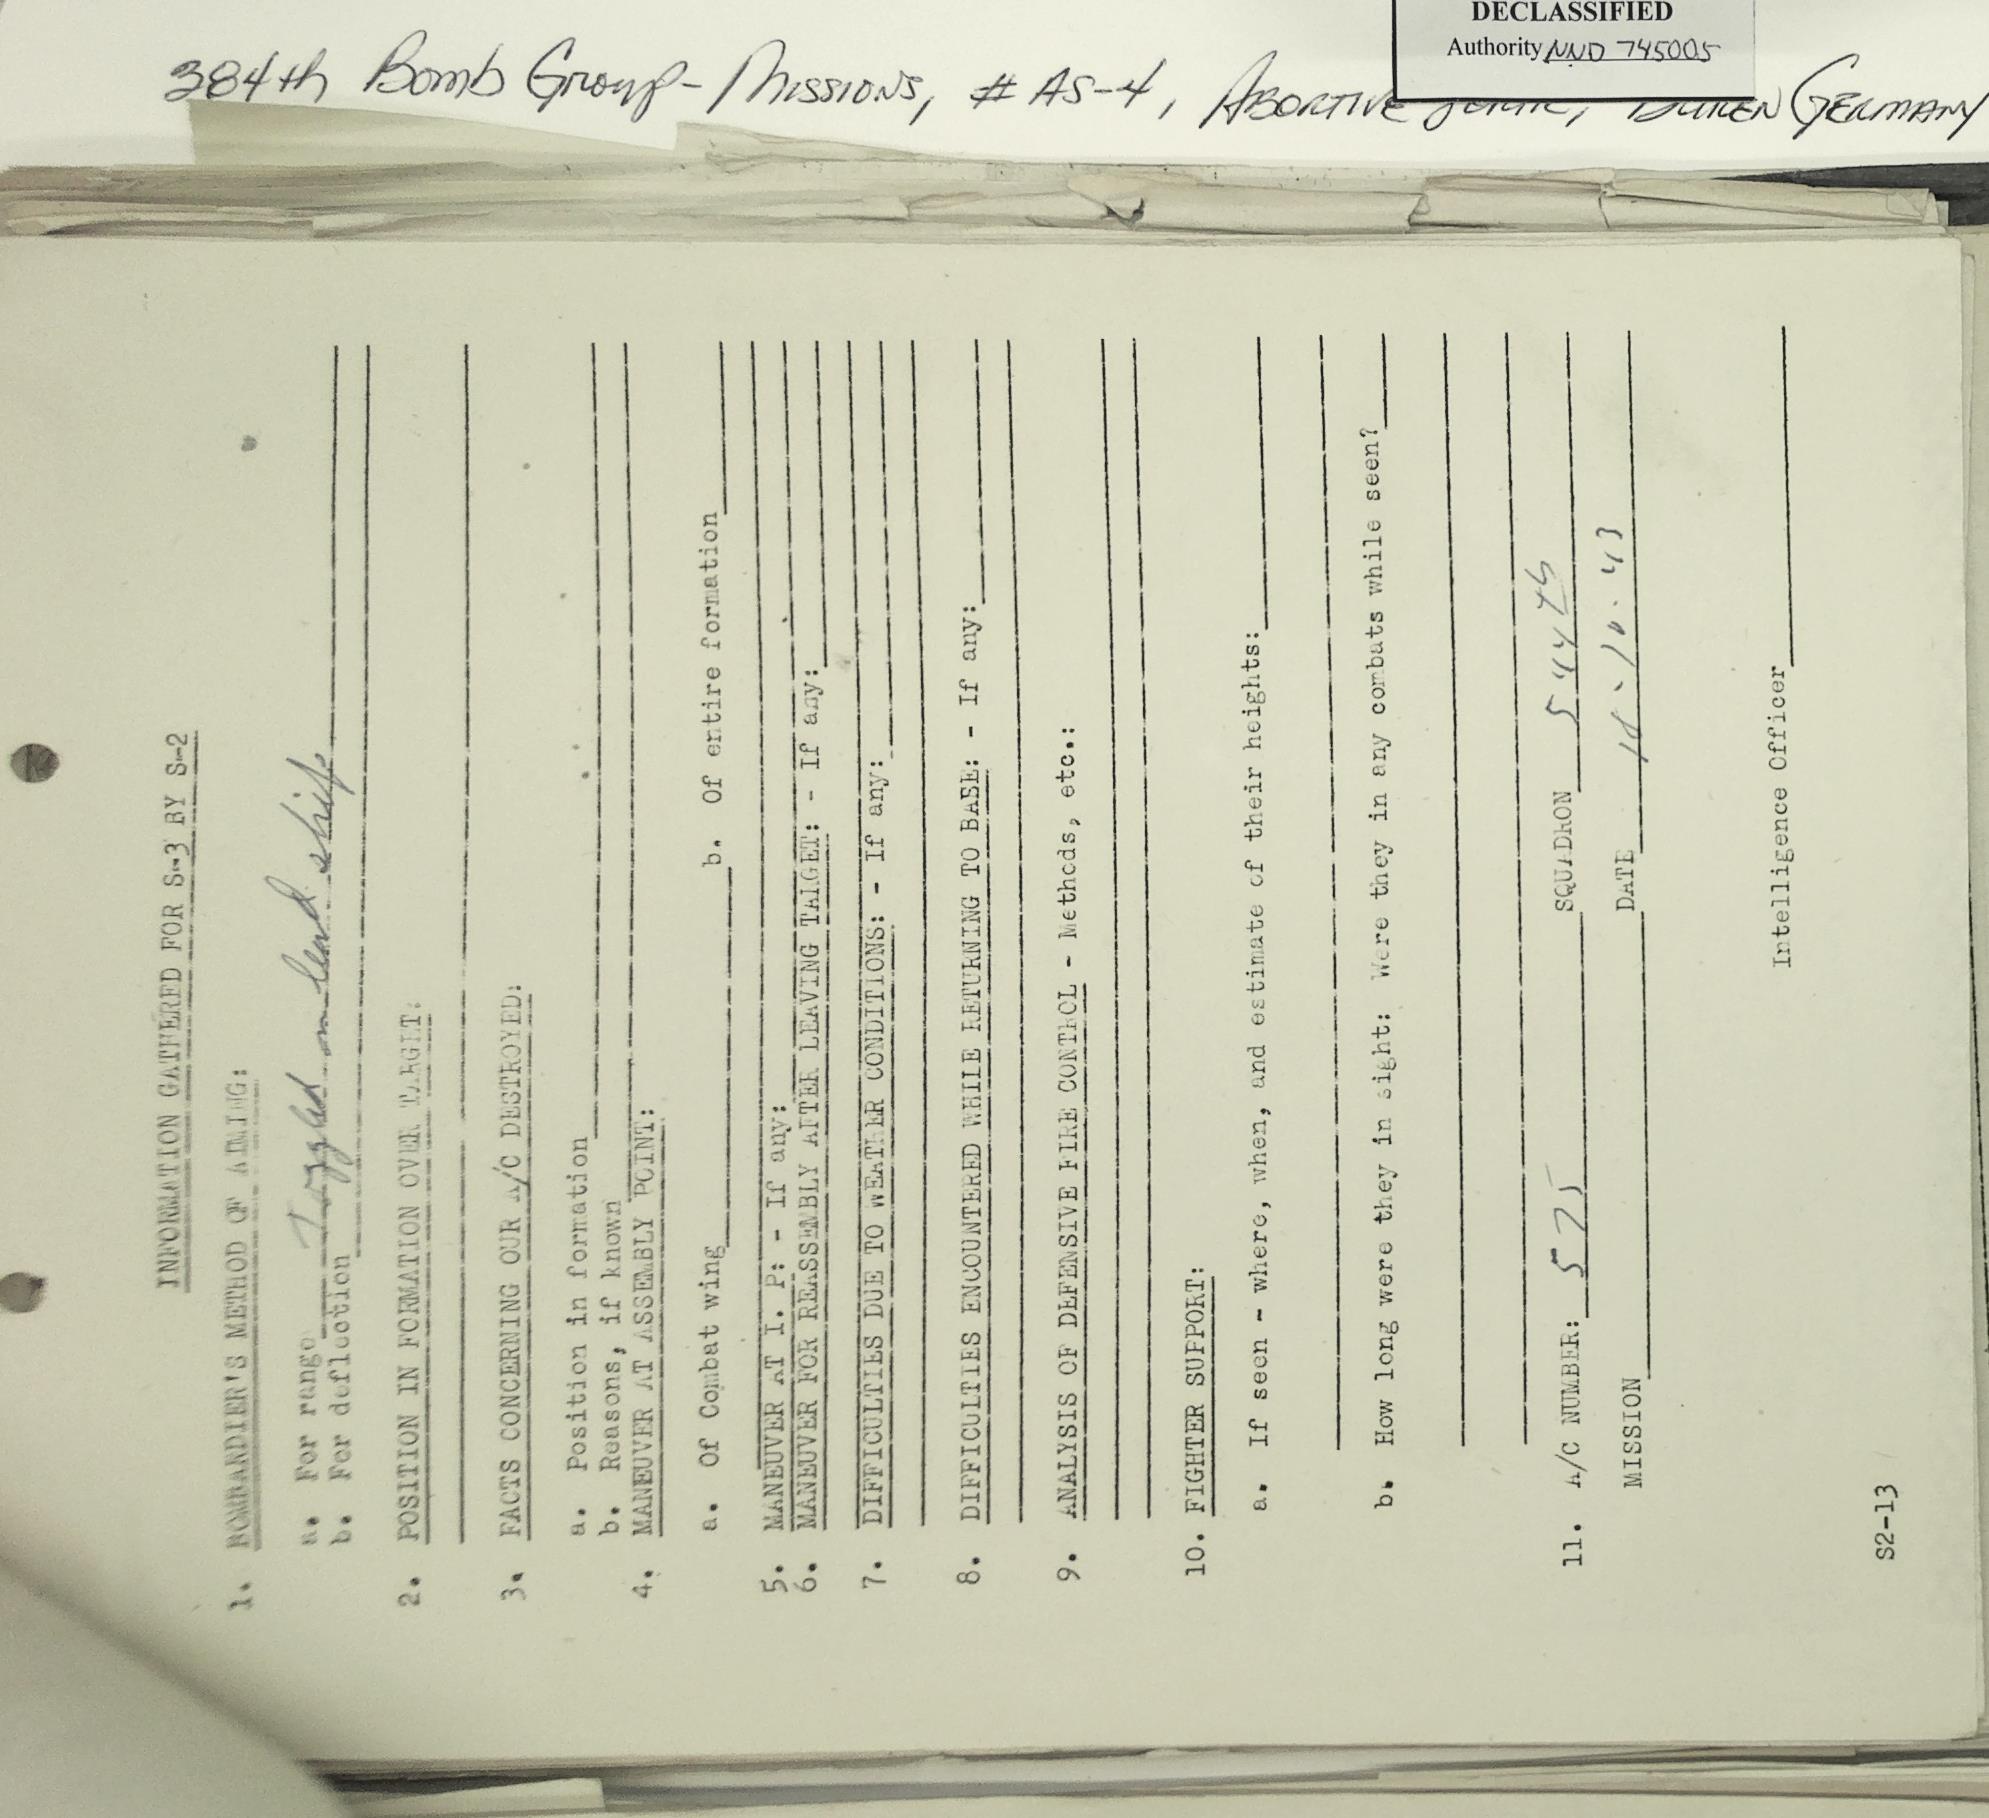 DECLASSIFIED
Authority NND 745005
384th Bomb Group - Missions, # AS-4, Abortive Germany
INFORMATION GATHERED FOR S-3 BY S-2
1. BOMBARDIER'S METHOD OF AIMING:
a. For range Toggled on lead ship
b. For deflection
2. POSITION IN FORMATION OVER TARGET:
3. FACTS CONCERNING OUR A/C DESTROYED:
a. Position in formation
b. Reasons, if known
4. MANEUVER AT ASSEMBLY POINT:
a. Of Combat wing b. Of entire formation
5. MANEUVER AT I. P: - If any:
6. MANEUVER FOR REASSEMBLY AFTER LEAVING TARGET: - If any:
7. DIFFICULTIES DUE TO WEATHER CONDITIONS: - If any:
8. DIFFICULTIES ENCOUNTERED WHILE RETURNING TO BASE: - If any:
9. ANALYSIS OF DEFENSIVE FIRE CONTROL - Methods, etc.:
10. FIGHTER SUPPORT:
a. If seen - where, when, and estimate of their heights:
b. How long were they in sight: Were they in any combats while seen?
11. A/C NUMBER: 575 SQUADRON 544th
MISSION DATE
Intelligence Officer
S2-13